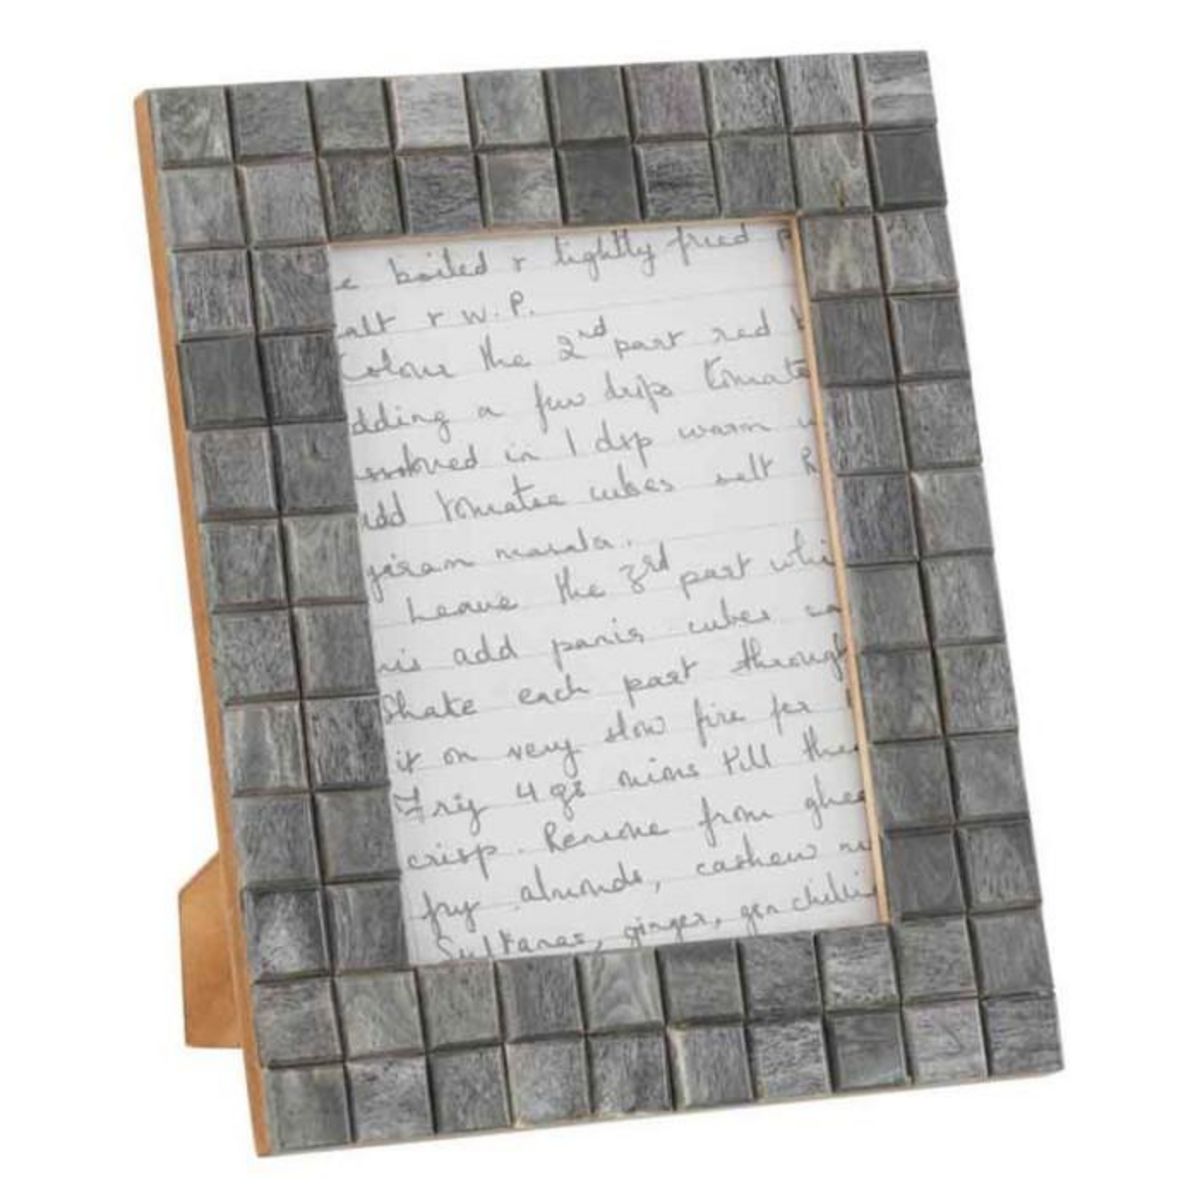 e boiled & lightly fried p
alt & W.P.
Colour the 2nd part red b
dding a few drips tomato
ssolved in 1 dsp warm w
add tomatoe cubes salt &
garam masala.
Leave the 3rd part whi
his add panir cubes
Shake each part through
it on very slow fire for
Fry 4 qs mins till the
crisp. Remove from ghee
fry almonds, cashew nu
Sultanas, ginger, grn chilli